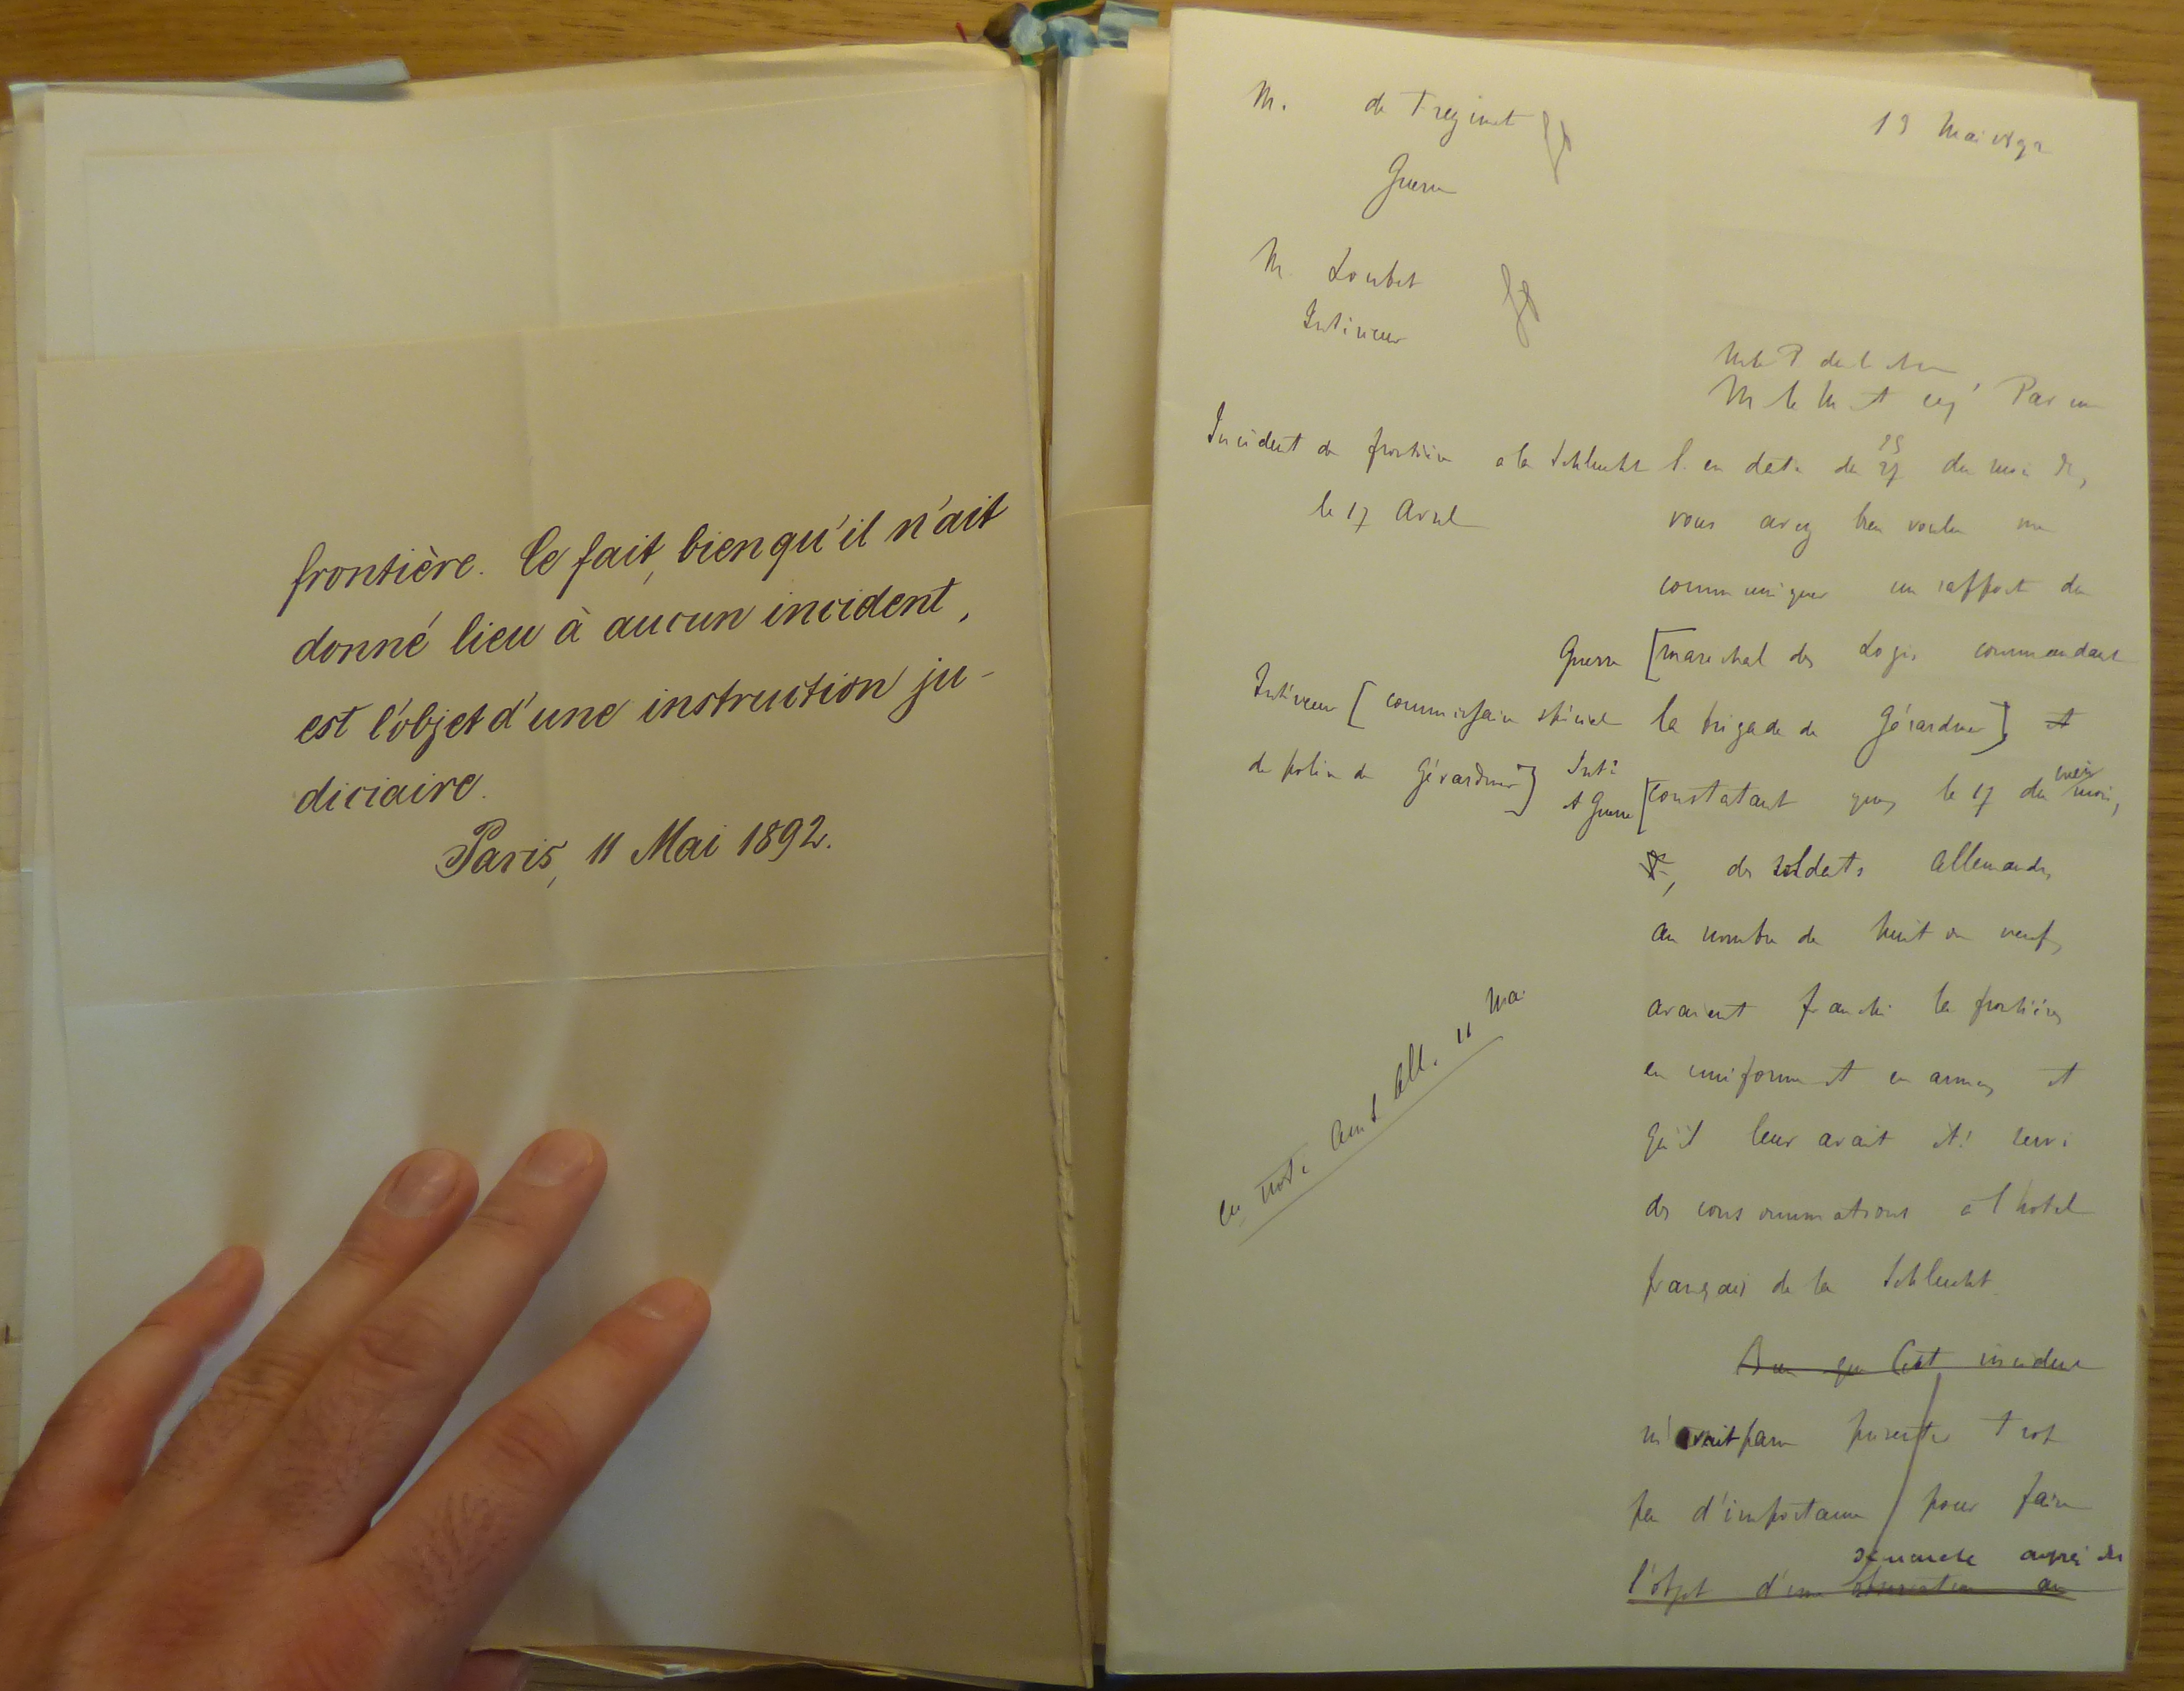 frontière. Ce fait, bien qu'il n'ait
donné lieu à aucun incident,
est l'objet d'une instruction ju-
diciaire.
Paris, 11 Mai 1892.
M. de Freycinet
Guerre
13 Mai 1892
M. Loubet
Intérieur
M. le M et ch, Par une
Incident de frontière à la Schlucht
le 17 Avril
l. en date du 25 27 du mois dr,
vous avez bien voulu me
communiquer un rapport du
Guerre [maréchal des Logis commandant
la brigade de Gérardmer] et
Intérieur [commissaire spécial
de police de Gérardmer]
Inté
et Guerre [constatant que, le 17 du mois,
des soldats allemands,
au nombre de huit ou neuf,
avaient franchi la frontière,
en uniforme et en armes, et
qu'il leur avait été servi
des consommations à l'hôtel
français de la Schlucht.
Cv note Amb All. 11 Mai
Bien que Cet incident
m'avait paru présenter trop
peu d'importance pour faire
démarche auprès du
l'objet d'une observation au